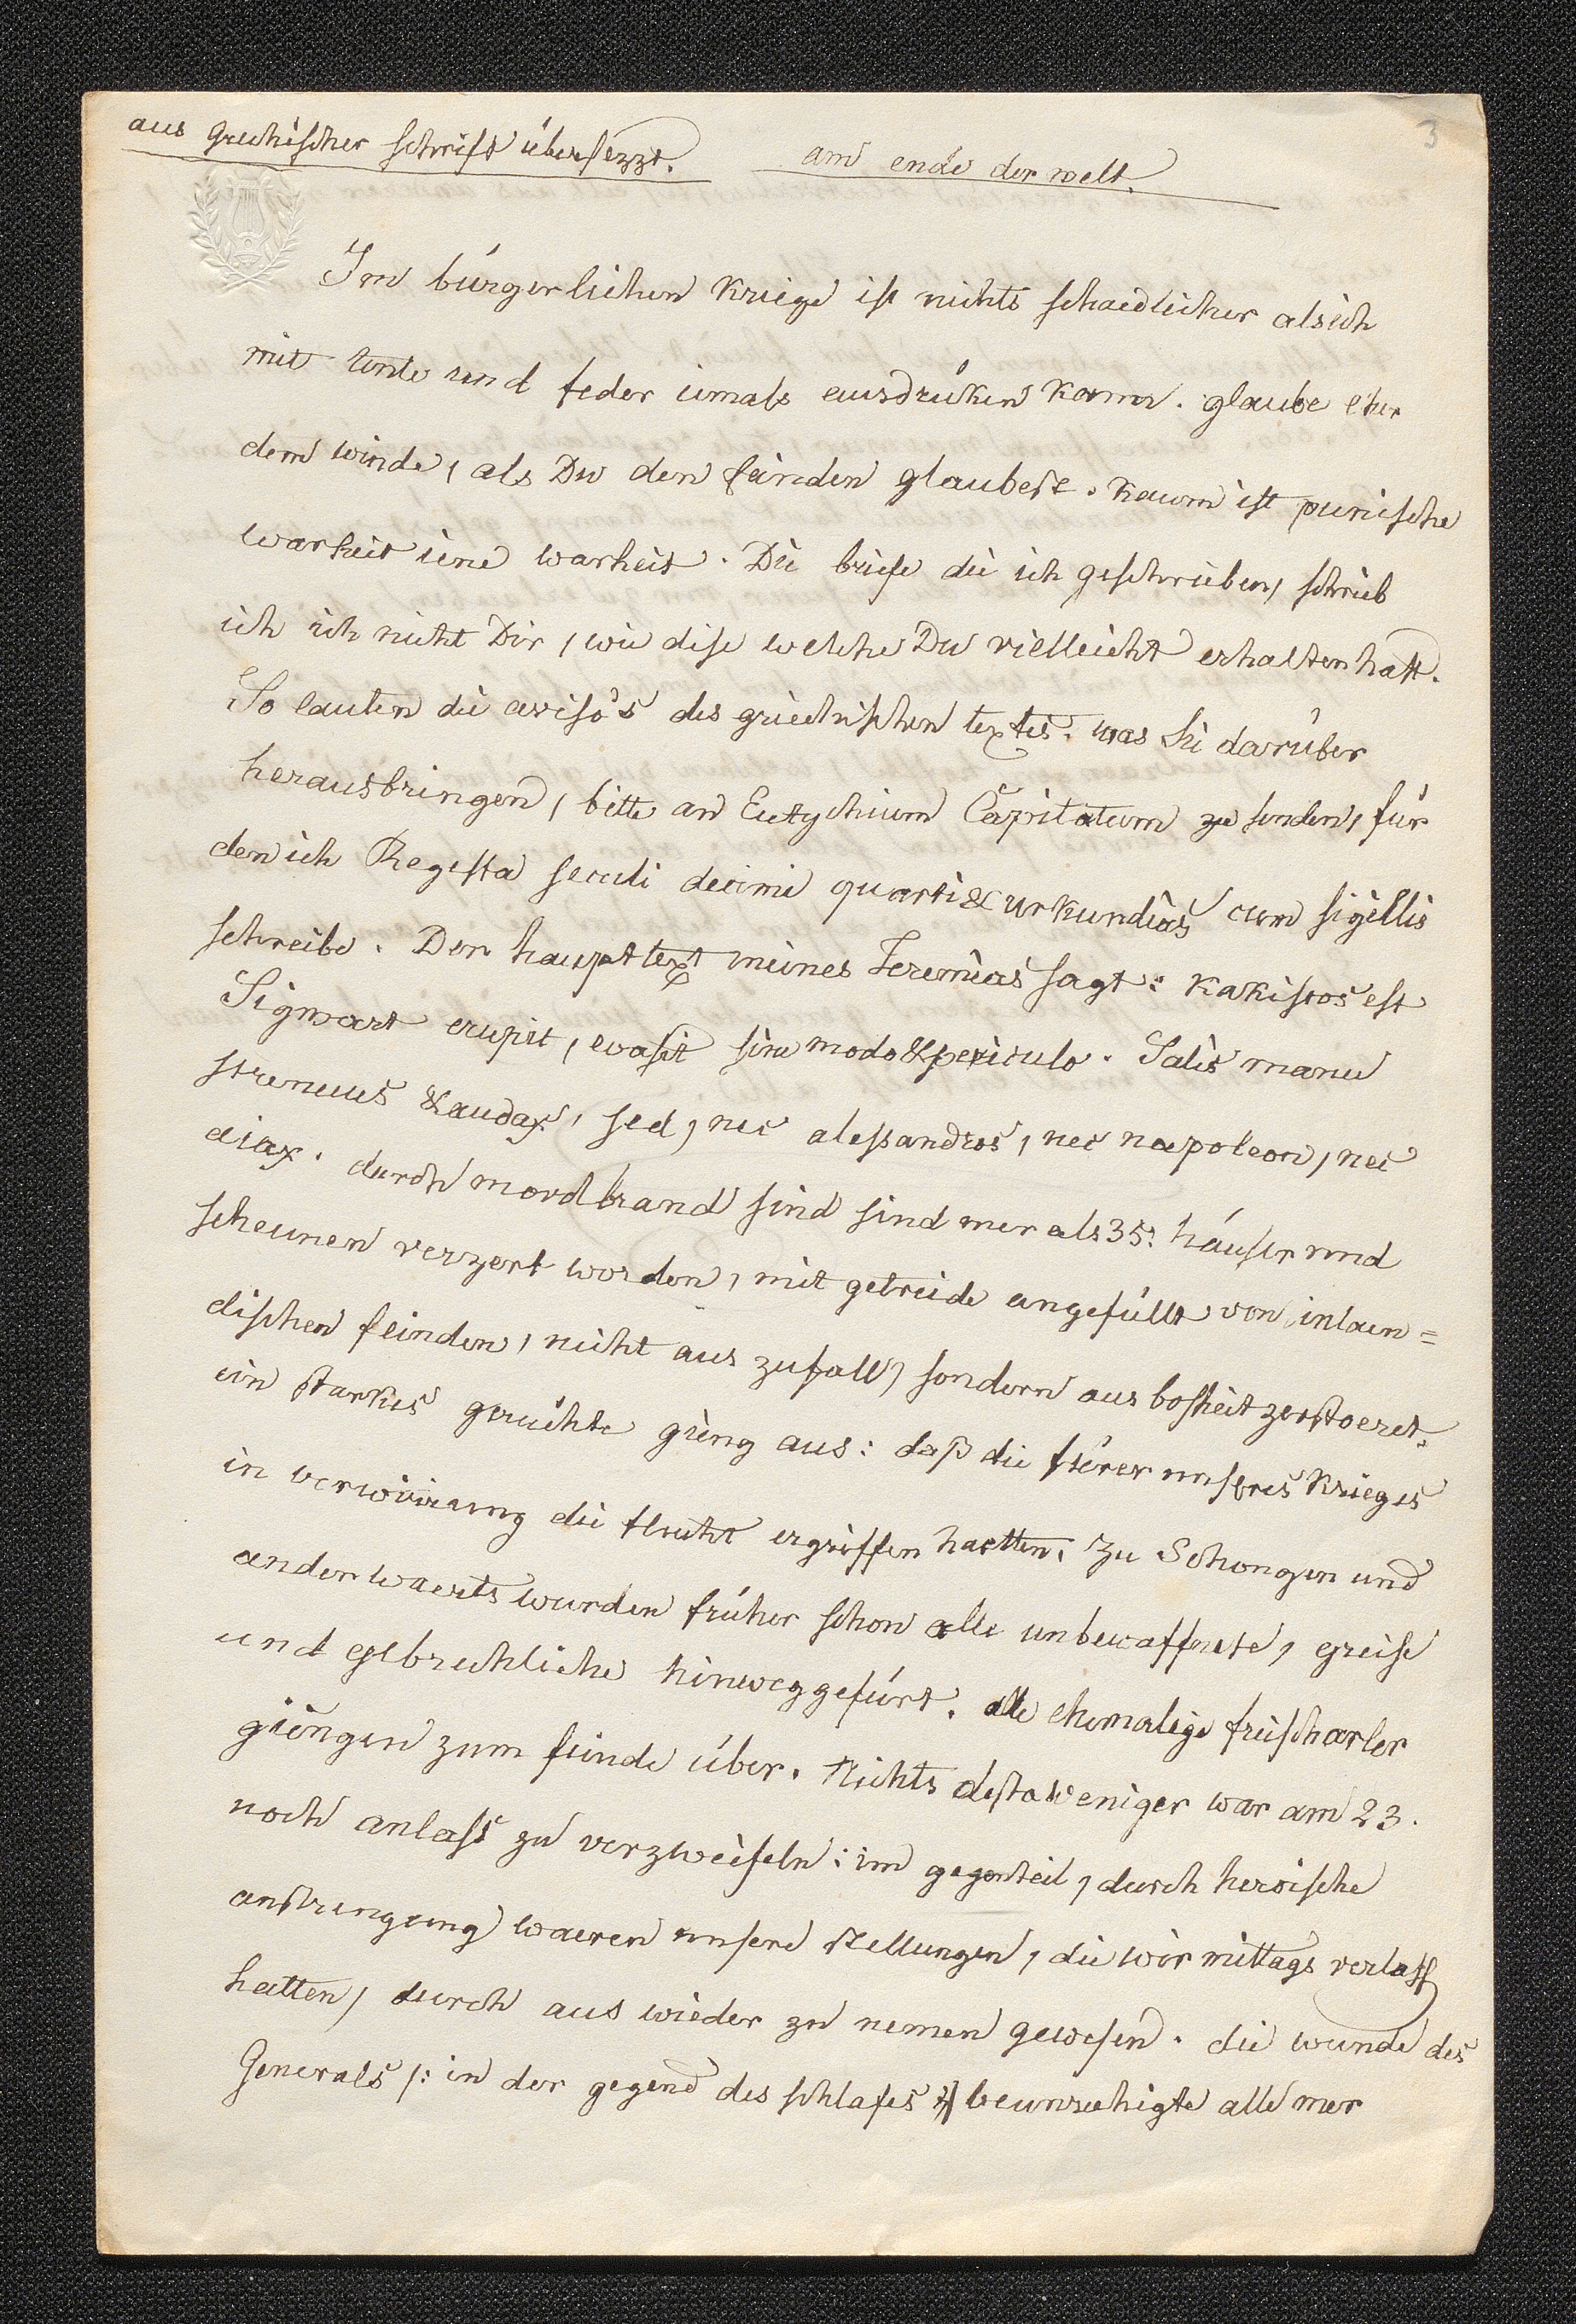 3
aus grichischer schrift übersezzt. am ende der welt.
Im bürgerlichen kriege ist nichts schaedlicher als ich
mit tinte und feder iemals ausdrüken kann. glaube eher
dem winde, als Du den feinden glaubest. kaum ist punische
warheit iene warheit. Die briefe die ich geschrieben, schrieb
ich ich nicht Dir, wie dise welche Du vielleicht erhalten hatt.
So lauten die aviso's des griechischen textes. was Sie darüber
herausbringen, bitte an Eutychium Capitatum zu senden, für
den ich Regesta seculi decimi quarti & urkundias cum sigillis
schreibe. Der haupttext meines Jeremias sagt: kakistos est
Sigwart erupit, evasit sine modo & periculo. Salis manu
strenuus & audax, sed, nec alessandros, nec napoleon, nec
aiax. durch mordbrand sind sind mer als 35. häuser und
scheunen verzert worden, mit getreide angefüllt von inlaen=
dischen feinden, nicht aus zufall, sondern aus bosheit zerstoeret.
ein starkes gerüchte gieng aus: daß die fürer unsres krieges
in verwirrung die flucht ergriffen haetten. Zu Schongen und
anderwaerts wurden früher schon alle unbewaffnete, greise
und gebrechliche hinweggefürt. alle ehemalige freischarler
giengen zum feinde über. Nichts destoweniger war am 23.
noch anlass zu verzweifeln: im gegenteil, durch heroische
anstrengung waeren unsere stellungen, die wir mittags verlass
hatten, durch aus wieder zu nemen gewesen. die wunde des
Generals /: in der gegend des schlafes :/ beunruhigte alle mer